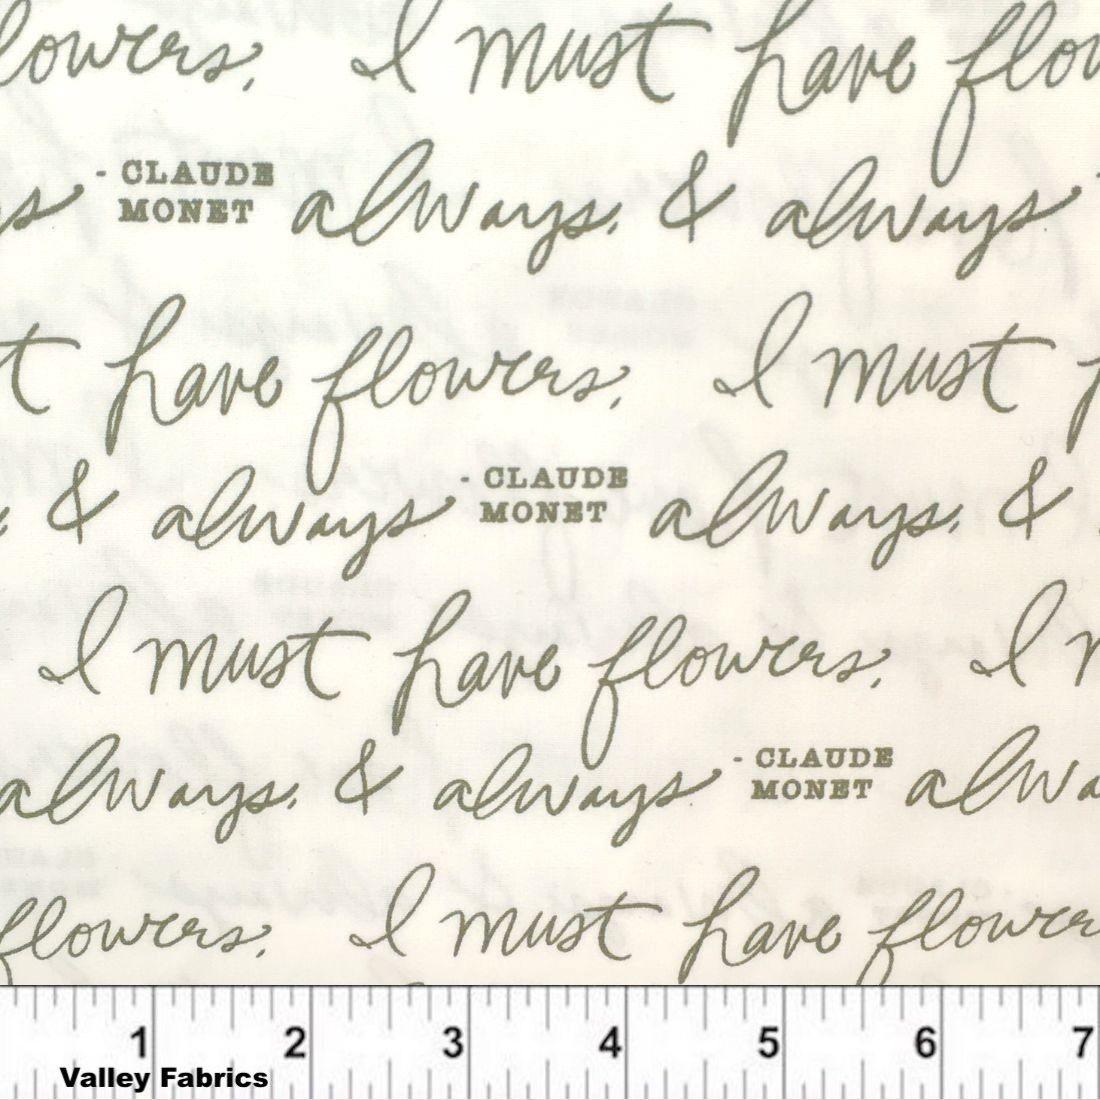 flowers, I must have flow
s - CLAUDE MONET always, & always
t have flowers, I must
& always - CLAUDE MONET always, &
I must have flowers, I m
always, & always - CLAUDE MONET alwa
flowers, I must have flowers
1 2 3 4 5 6 7
Valley Fabrics